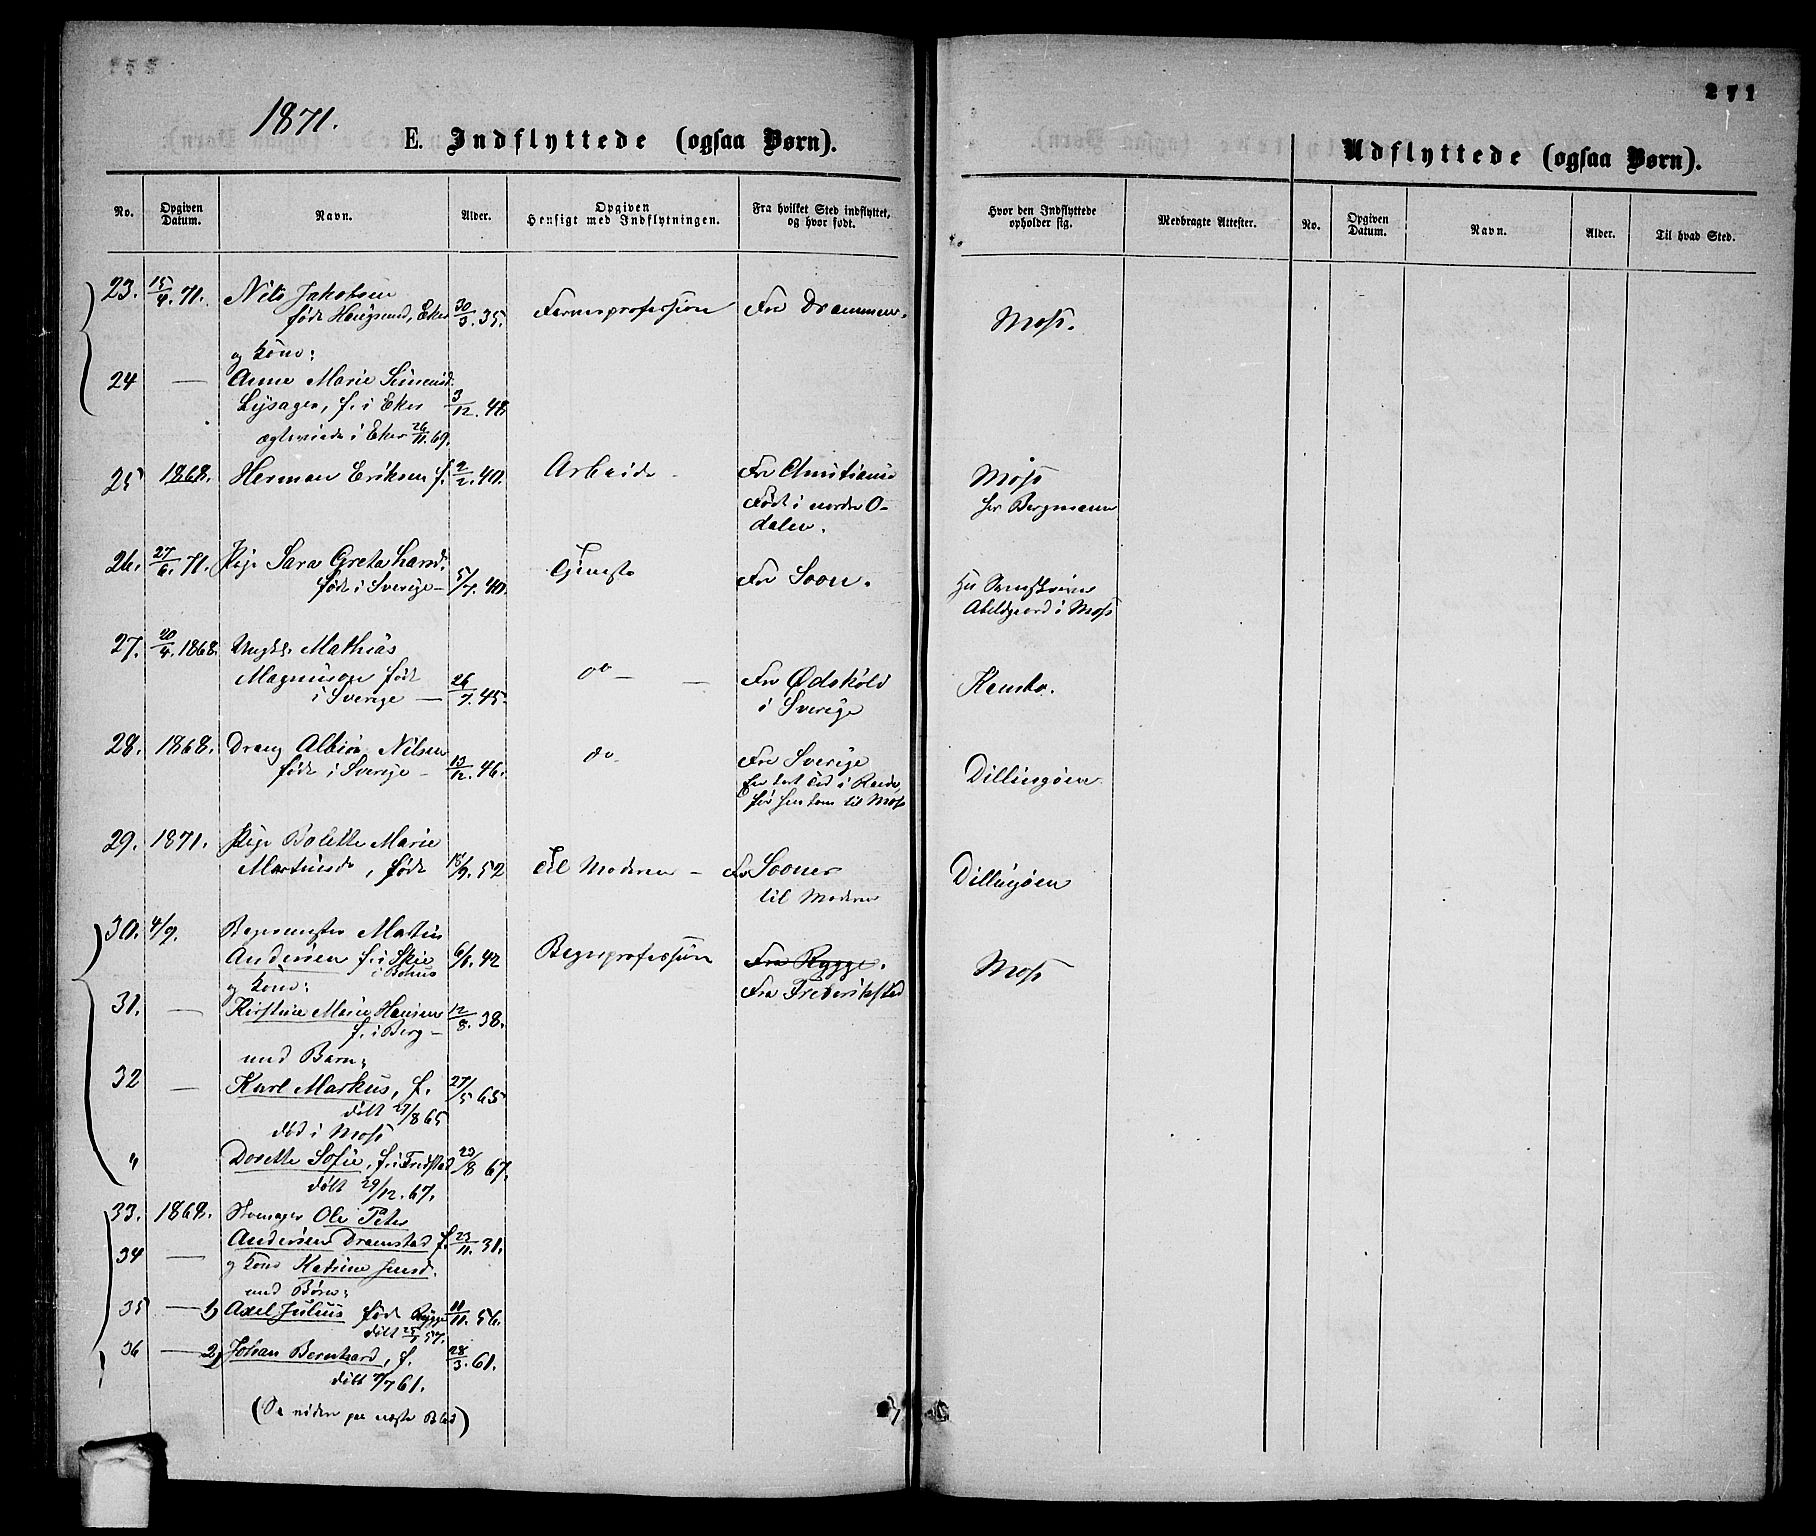 271
1871.
E. Indflyttede (ogsaa Børn).
Udflyttede (ogsaa Børn).
No. Opgiven Datum. Navn. Alder. Opgiven Hensigt med Indflytningen. Fra hvilket Sted indflyttet, og hvor født. Hvor den Indflyttede opholder sig. Medbragte Attester. No. Opgiven Datum. Navn. Alder. Til hvad Sted.
23. 15/4.71. Nils Jakobsen
født Hougsund, Eker 30/3.35. Farverprofession Fra Drammen. Moss.
og Kone:
24 — Anne Marie Simensd.
Lysager, f. i Eker 3/12.48
ægteviede i Eker 26/11.69.
25 1868. Herman Eriksen f. 2/2.40. Arbeide - Fra Christiania Moss
Født i nordre O- hos Bergmann
dalen.
26. 27/6.71. Pige Sara Greta
født i Sverige — 5/7.40. Tjeneste Fra Soon.
Abildgaard i Moss
27. 20/4.1868. Ungk. Mathias
Magnuson født do — — Fra Ødskøld Kambo.
i Sverige — 26/7.45. i Sverige
28. 1868. Dreng Albin Nilsen do - Fra Sverige
født i Sverige - 13/12.46. Dillingøen
før han kom til Moss
29. 1871. Pige Bolette Marie
Martinsd., født 18/9.52 Til Moderen - Fra Sooner Dillingøen
til Moderen
30. 4/9. Bagermester Martin
Andersen f. i Skee 6/6.42 Bagerprofession Fra Rygge. Moss
i Bohus
og Kone: Fra Frederikstad
31. — Kirstine Marie Hansen 12/8.38.
f. i Berg —
med Barn:
32 — Karl Markus, f. 27/5 65
døbt 27/8 65
død i Moss
" Dorette Sofie, f. i Fredstad 23/8 67.
døbt 29/12.67.
33. 1868. Ole Peter
Andersen Dramstad f. 23/11.31.
34 — og Kone Katrine Jensd.
med Børn:
35 — 1) Axel Julius født Rygge 11/11.56.
døbt 25/1 57.
36 — 2) Johan Bernhard, f. 28/3.61.
døbt 7/7 61.
(Se videre paa næste Blad)